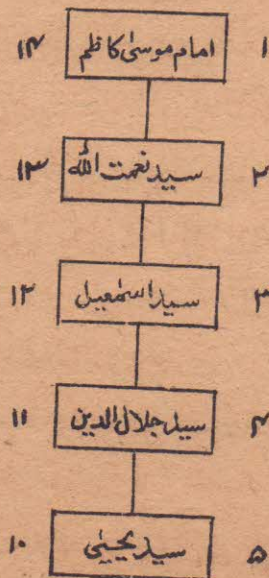 ۱ امام موسیٰ کاظم ۱۴
۲ سید نعمت اللہ ۱۳
۳ سید اسمٰعیل ۱۲
۴ سید جلال الدین ۱۱
۵ سید یحییٰ ۱۰